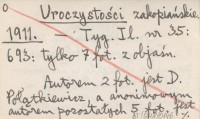 Uroczystości zakopiańskie.
1911. — Tyg. Il. nr 35:
693: tylko 7 fot. z objaśn.
Autorem 2 fot. jest D.
Połątkiewicz, a anonimowym
autorem pozostałych 5 fot. jest